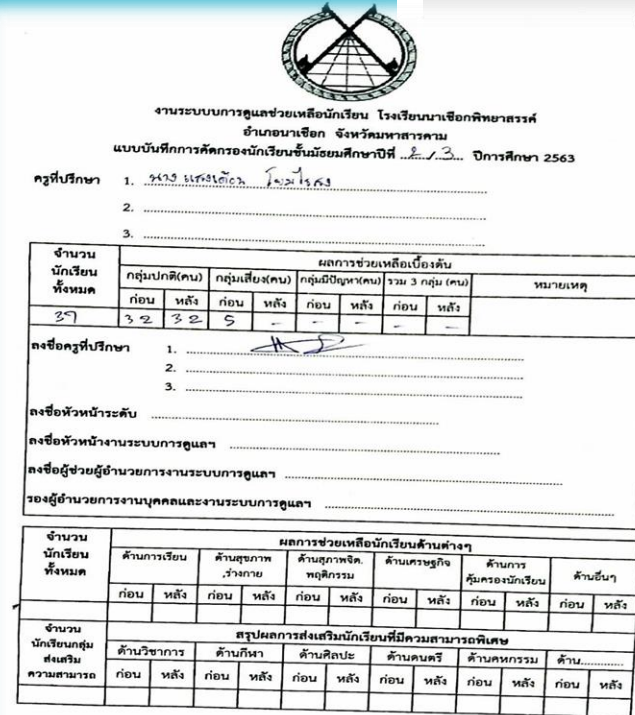 งานระบบบการดูแลช่วยเหลือนักเรียน โรงเรียนนาเชือกพิทยาสรรค์
อำเภอนาเชือก จังหวัดมหาสารคาม
แบบบันทึกการคัดกรองนักเรียนชั้นมัธยมศึกษาปีที่ ..2./.3... ปีการศึกษา 2563
ครูที่ปรึกษา 1. นาง แสงเดือน
2.
3.
จำนวนนักเรียนทั้งหมด ผลการช่วยเหลือเบื้องต้น
กลุ่มปกติ(คน) กลุ่มเสี่ยง(คน) กลุ่มมีปัญหา(คน) รวม 3 กลุ่ม (คน) หมายเหตุ
ก่อน หลัง ก่อน หลัง ก่อน หลัง ก่อน หลัง
37 32 32 5 - - - - -
ลงชื่อครูที่ปรึกษา 1.
2.
3.
ลงชื่อหัวหน้าระดับ
ลงชื่อหัวหน้างานระบบการดูแลฯ
ลงชื่อผู้ช่วยผู้อำนวยการงานระบบการดูแลฯ
รองผู้อำนวยการงานบุคคลและงานระบบการดูแลฯ
จำนวนนักเรียนทั้งหมด ผลการช่วยเหลือนักเรียนด้านต่างๆ
ด้านการเรียน ด้านสุขภาพ ,ร่างกาย ด้านสุภาพจิต. พฤติกรรม ด้านเศรษฐกิจ ด้านการคุ้มครองนักเรียน ด้านอื่นๆ
ก่อน หลัง ก่อน หลัง ก่อน หลัง ก่อน หลัง ก่อน หลัง ก่อน หลัง
จำนวนนักเรียนกลุ่มส่งเสริมความสามารถ สรุปผลการส่งเสริมนักเรียนที่มีควมสามารถพิเศษ
ด้านวิชาการ ด้านกีฬา ด้านศิลปะ ด้านดนตรี ด้านคหกรรม ด้าน............
ก่อน หลัง ก่อน หลัง ก่อน หลัง ก่อน หลัง ก่อน หลัง ก่อน หลัง